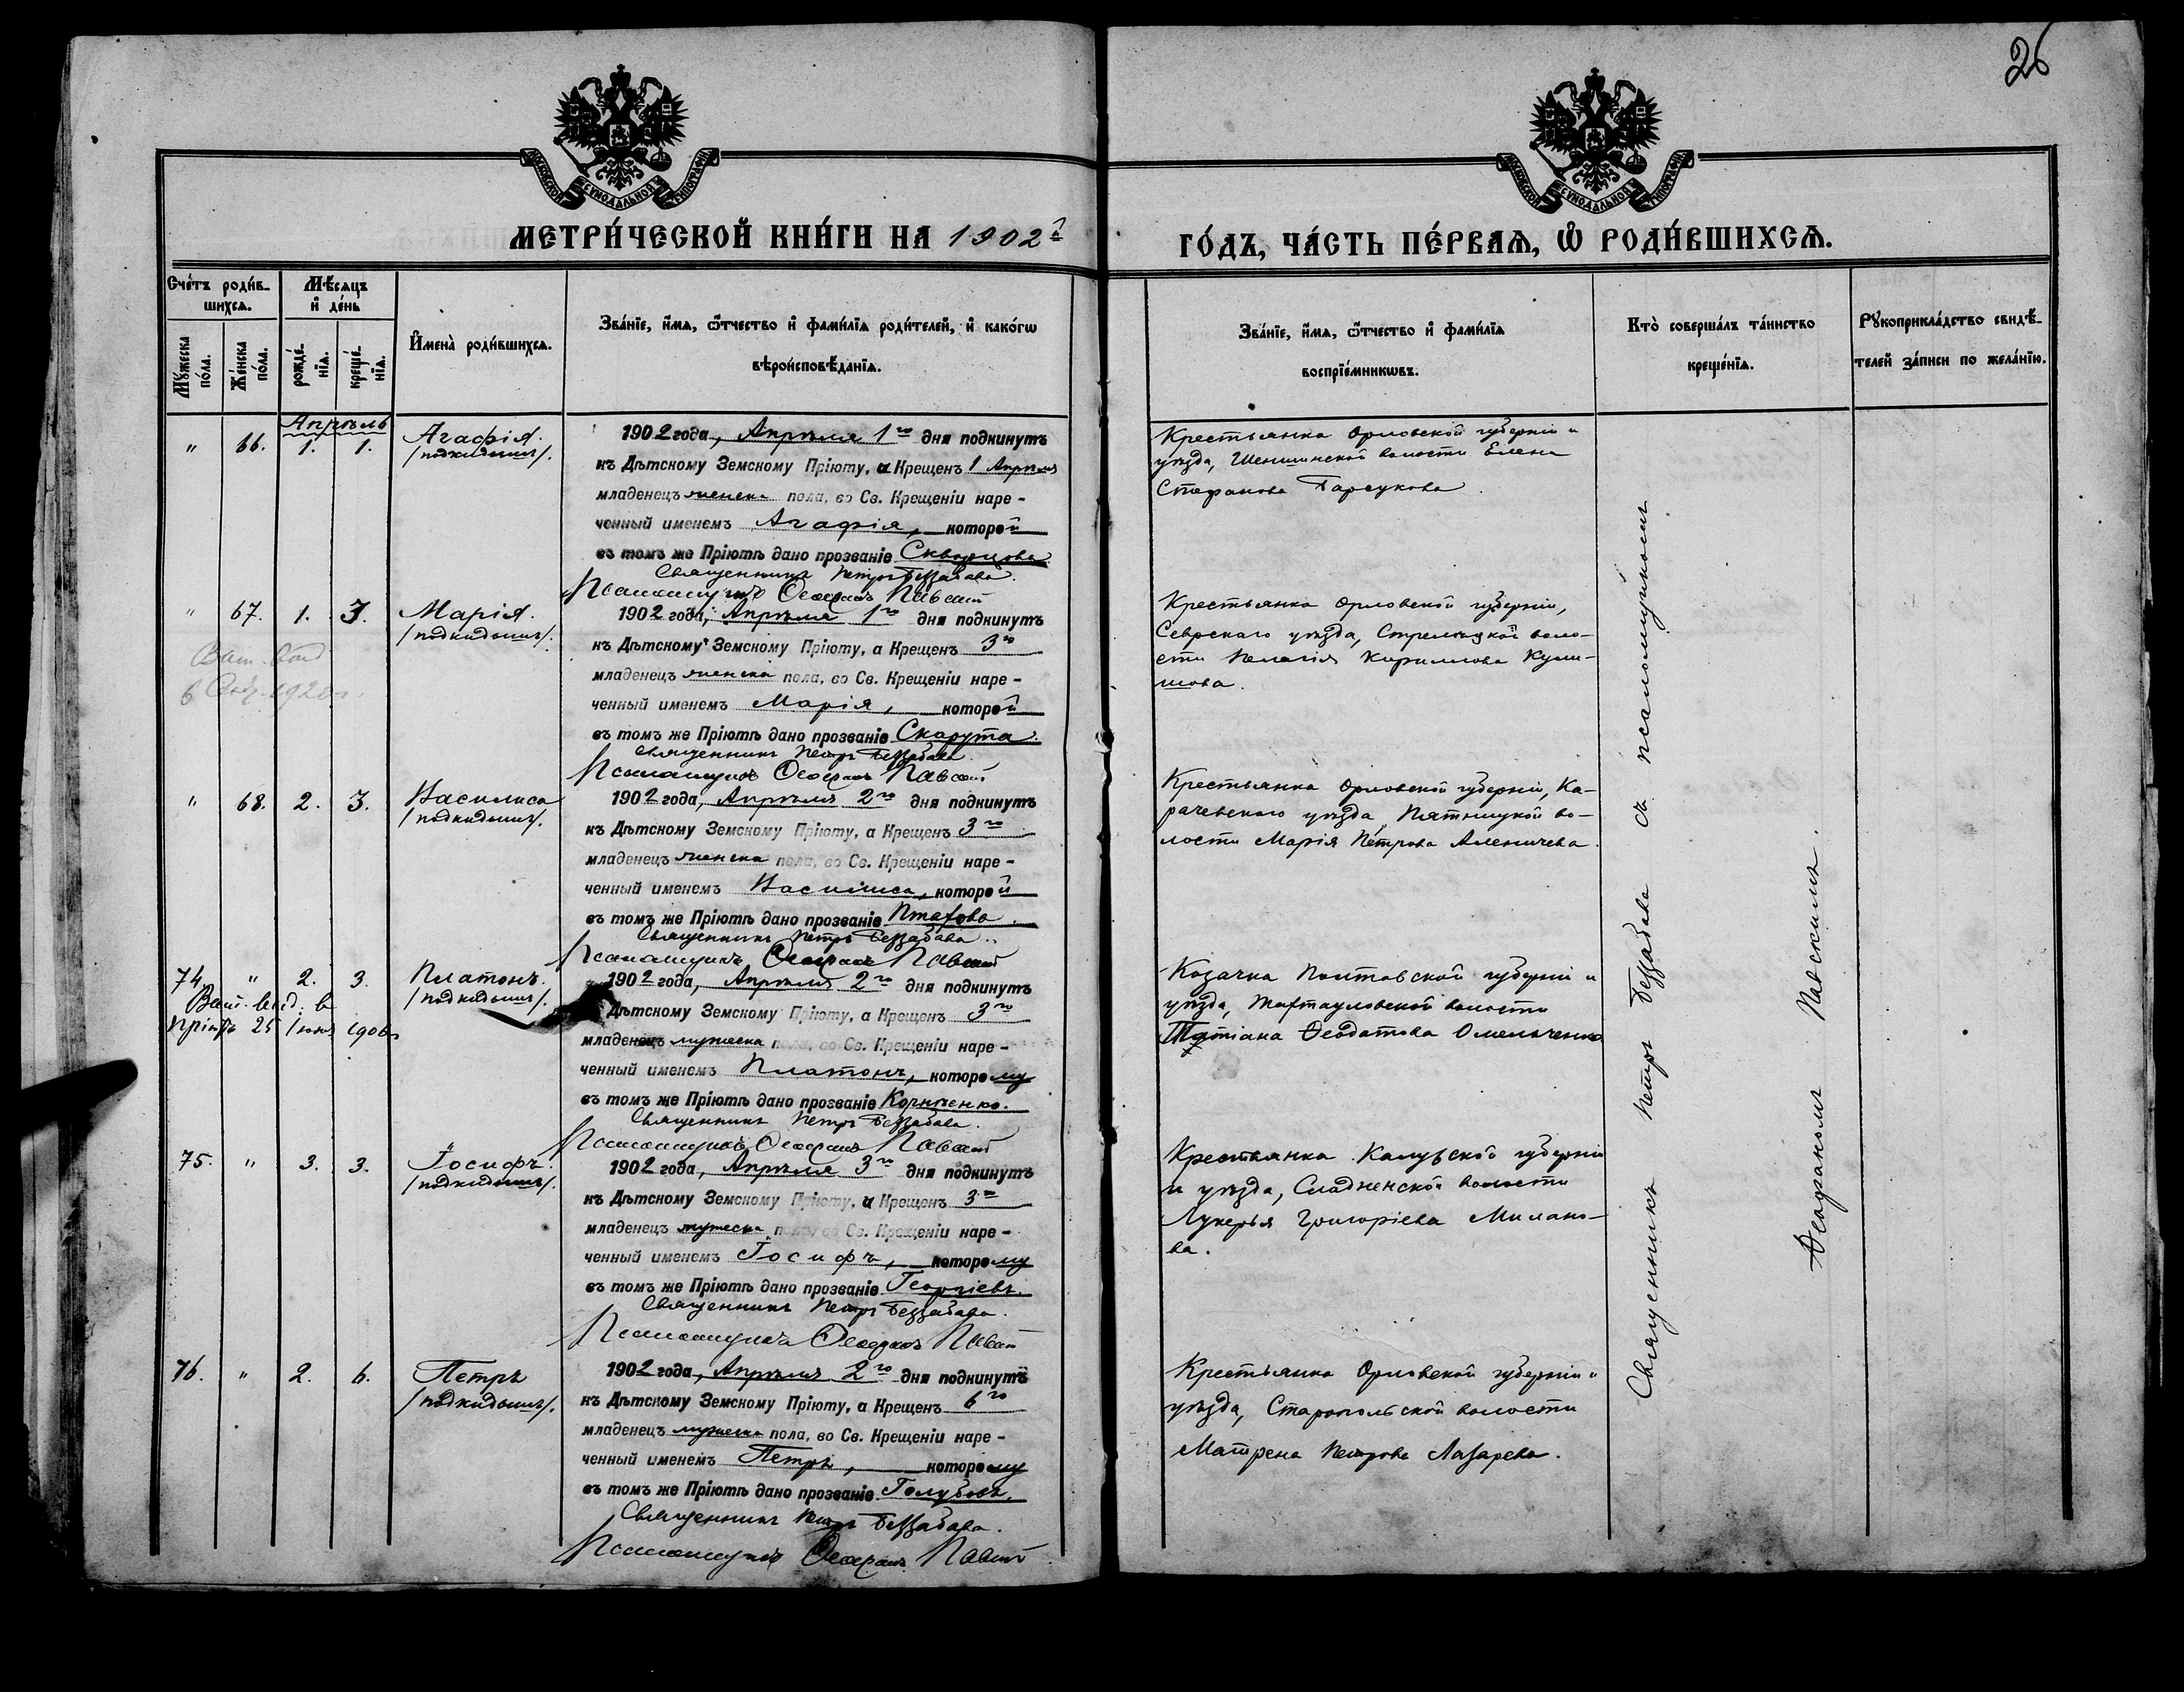 26
МОСКОВСКОЙ СѴНОДАЛЬНОЙ ТИПОГРАФІИ
МОСКОВСКОЙ СѴНОДАЛЬНОЙ ТИПОГРАФІИ
МЕТРИ́ЧЕСКОЙ КНИ́ГИ НА 1902й
ГО́ДЪ, ЧА́СТЬ ПЕ́РВАѦ, Ѽ РОДИ́ВШИХСѦ.
Сче́тъ роди́в-
шихсѧ.
Мѣ́сѧцъ
и҆ де́нь
Мꙋ́жеска по́ла.
Же́нска по́ла.
рожде́-
нїѧ.
креще́-
нїѧ.
И҆мена̀ роди́вшихсѧ.
Зва́нїе, и҆́мѧ, ѻ҆́тчество и҆ фами́лїѧ роди́телей, и҆ како́гѡ
вѣроисповѣ́данїѧ.
Зва́нїе, и҆́мѧ, ѻ҆́тчество и҆ фами́лїѧ
воспрїе́мникѡвъ.
Кто̀ соверша́лъ та́инство
креще́нїѧ.
Рꙋкоприкла́дство свидѣ́-
телей за́писи по жела́нїю.
Апрѣль
" 66. 1. 1. Агафія.
/подкидышъ/.
1902 года, Апрѣля 1го дня подкинутъ
къ Дѣтскому Земскому Пріюту, а Крещенъ 1 Апрѣля
младенецъ женска пола, во Св. Крещеніи наре-
ченный именемъ Агафія, которой
въ томъ же Пріютѣ дано прозваніе Скворцова.
Священникъ Петръ Беззабава.
Псаломщикъ Ѳеофанъ Павскій
Крестьянка Орловской губерніи и
уѣзда, Шеншинской волости Елена
Стефанова Барсукова.
" 67. 1. 3. Марія.
/подкидышъ/.
1902 года, Апрѣля 1го дня подкинутъ
къ Дѣтскому Земскому Пріюту, а Крещенъ 3го
младенецъ женска пола, во Св. Крещеніи наре-
ченный именемъ Марія, которой
въ томъ же Пріютѣ дано прозваніе Скарута.
Священникъ Петръ Беззабава.
Псаломщикъ Ѳеофанъ Павскій
Крестьянка Орловской губерніи,
Севрскаго уѣзда, Стрелецкой воло-
сти Пелагія Кириллова
" 68. 2. 3. Василиса
/подкидышъ/.
1902 года, Апрѣля 2го дня подкинутъ
къ Дѣтскому Земскому Пріюту, а Крещенъ 3го
младенецъ женска пола, во Св. Крещеніи наре-
ченный именемъ Василиса, которой
въ томъ же Пріютѣ дано прозваніе Птахова.
Священникъ Петръ Беззабава.
Псаломщикъ Ѳеофанъ Павскій
Крестьянка Орловской губерніи, Ка-
рачевскаго уѣзда, Пятницкой во-
лости Марія Петрова Аленичева.
74. " 2. 3. Платонъ.
/подкидышъ/.
Пріютъ 25 1906
1902 года, Апрѣля 2го дня подкинутъ
Дѣтскому Земскому Пріюту, а Крещенъ 3го
младенецъ мужеска пола, во Св. Крещеніи наре-
ченный именемъ Платонъ, которому
въ томъ же Пріютѣ дано прозваніе Корніенко.
Священникъ Петръ Беззабава.
Псаломщикъ Ѳеофанъ Павскій
Козачка Полтавской губерніи и
уѣзда, Жартауловской волости
Татіана Ѳеодотова Омельченко
75. " 3. 3. Іосифъ.
/подкидышъ/.
1902 года, Апрѣля 3го дня подкинутъ
къ Дѣтскому Земскому Пріюту, а Крещенъ 3го
младенецъ мужеска пола, во Св. Крещеніи наре-
ченный именемъ Іосифъ, которому
въ томъ же Пріютѣ дано прозваніе Георгіевъ.
Священникъ Петръ Беззабава.
Псаломщикъ Ѳеофанъ Павскій
Крестьянка Калужской губерніи
и уѣзда, волости
Лукерья Григоріева Милано-
ва.
76. " 2. 6. Петръ
/подкидышъ/.
1902 года, Апрѣля 2го дня подкинутъ
къ Дѣтскому Земскому Пріюту, а Крещенъ 6го
младенецъ мужеска пола, во Св. Крещеніи наре-
ченный именемъ Петръ, которому
въ томъ же Пріютѣ дано прозваніе Голубовъ.
Священникъ Петръ Беззабава.
Псаломщикъ Ѳеофанъ Павскій
Крестьянка Орловской губерніи и
уѣзда, Старопольской волости
Матрена Петрова Лазарева.
Священникъ Петръ Беззабава съ псаломщикомъ
Ѳеофаномъ Павскимъ.